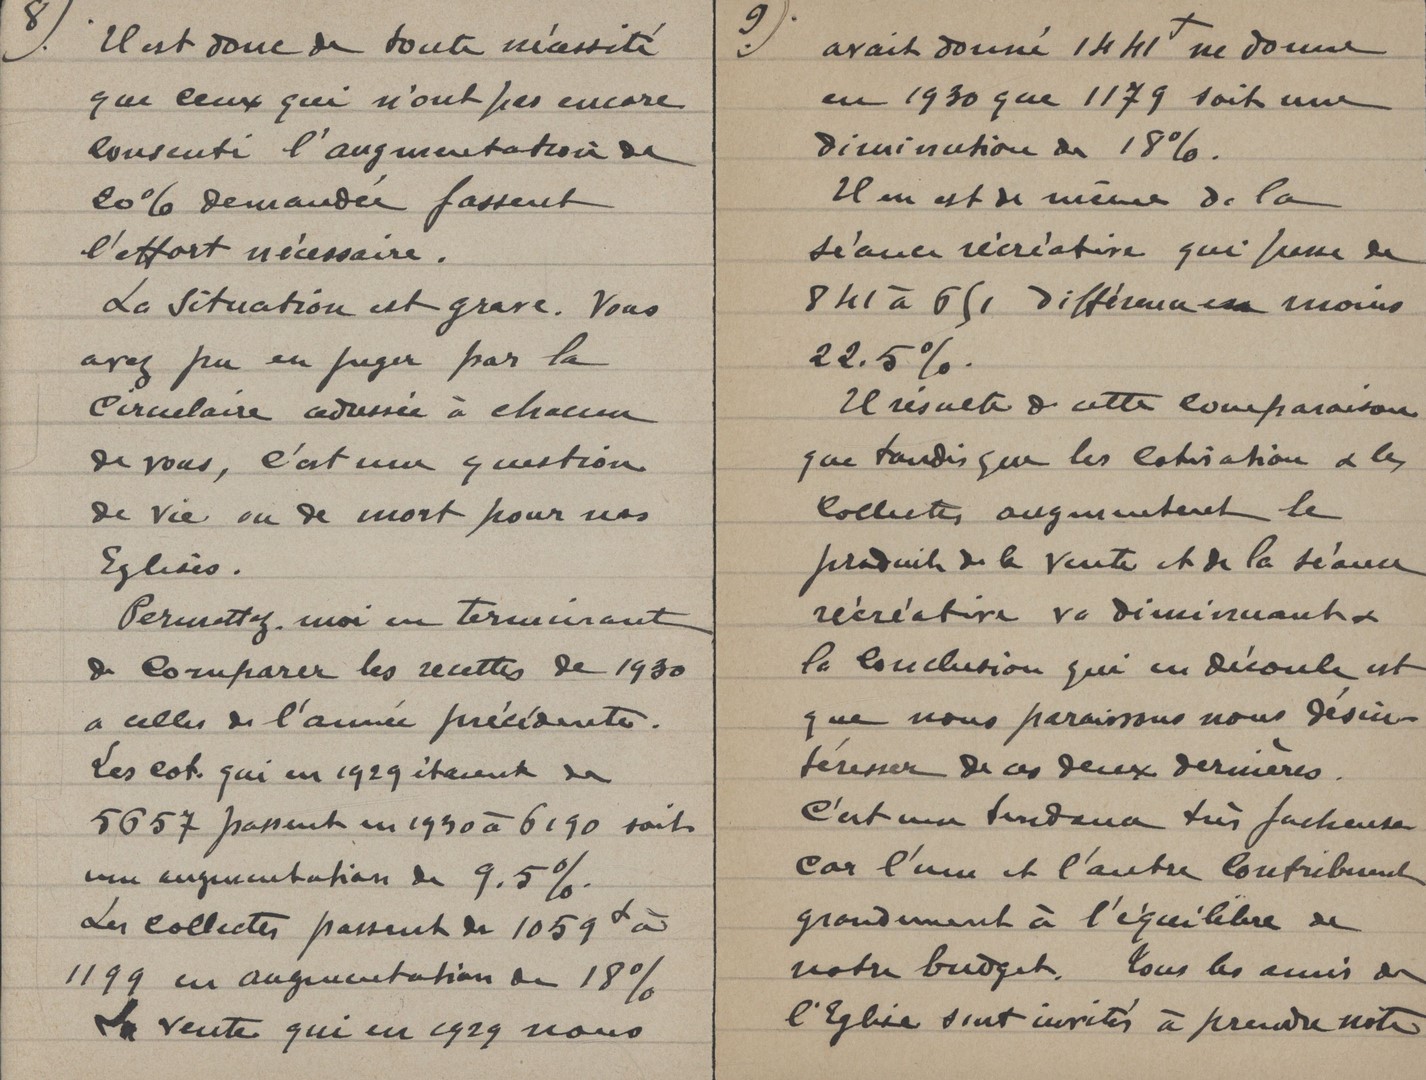 8).
Il est donc de toute nécessité
que ceux qui n'ont pas encore
consenti l'augmentation de
20% demandée fassent
l'effort nécessaire.
La situation est grave. Vous
avez pu en juger par la
circulaire adressée à chacun
de vous, c'est une question
de vie ou de mort pour nos
Eglises.
Permettez-moi en terminant
de comparer les recettes de 1930
a celles de l'année précédente.
Les cot. qui en 1929 étaient de
5657 passent en 1930 à 6190 soit
une augmentation de 9.5%.
Les collectes passent de 1059 f à
1199 en augmentation de 18%
La vente qui en 1929 nous
9).
avait donné 1441 f ne donne
en 1930 que 1179 soit une
diminution de 18%.
Il en est de même de la
séance récréative qui passe de
841 à 651 différence en moins
22.5%.
Il résulte de cette comparaison
que tandis que les cotisation & les
collectes augmentent le
produit de la vente et de la séance
récréative va diminuant &
la conclusion qui en découle est
que nous paraissons nous désin-
téresser de ces deux dernières.
C'est une tendance très facheuse
car l'une et l'autre contribuent
grandement à l'équilibre de
notre budget. Tous les amis de
l'Eglise sont invités à prendre note